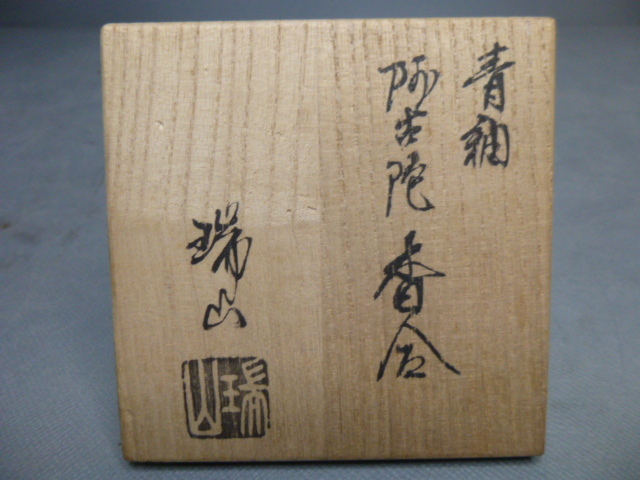 青釉
阿古陀香合
瑞山
瑞山